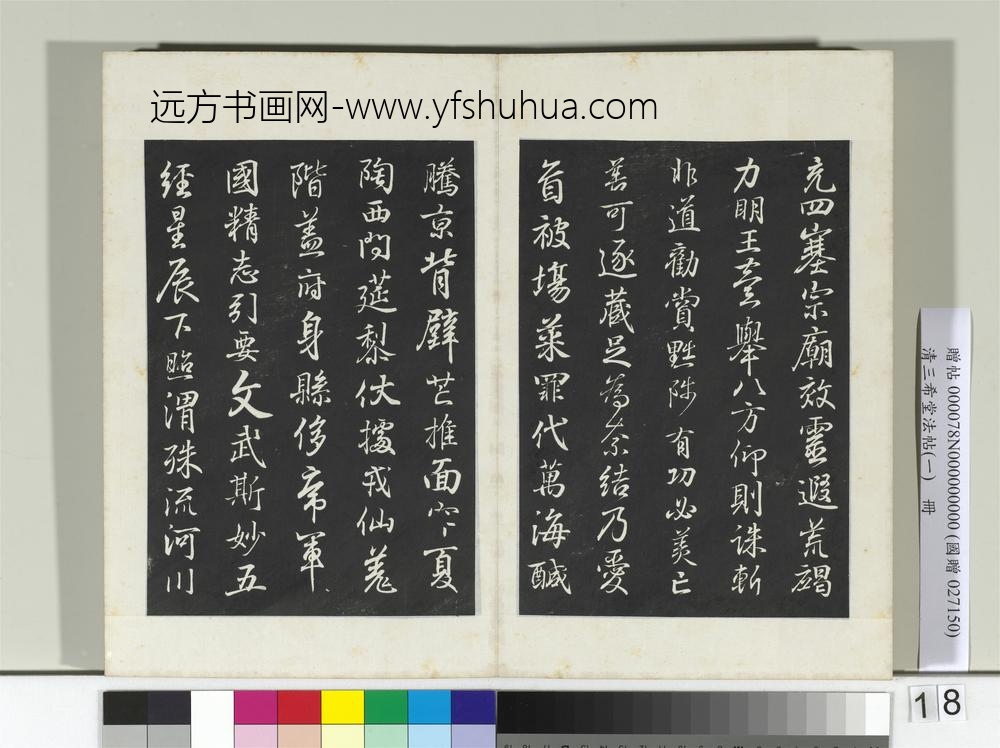 远方书画网-www.yfshuhua.com
充四塞宗廟效靈遐荒竭
力明王臺舉八方仰則誅斬
非道勸賞黜陟有功必美已
甚可逐藏足為奈結乃愛
首被場菜罪代萬海醎
騰京背壁芒推面宀夏
陶西門莚黎伏據戎仙羌
階蓋府身縣侈帝軍
國精志引要文武斯妙五
經星辰下照渭殊流河川
贈帖 000078N000000000 (國贈 027150)
清三希堂法帖(一) 冊
18